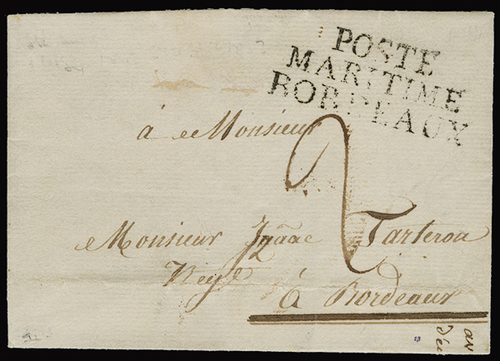 POSTE
MARITIME
BORDEAUX
à Monsieur
2
Monsieur Isaac Tarteron
à Bordeaux
an